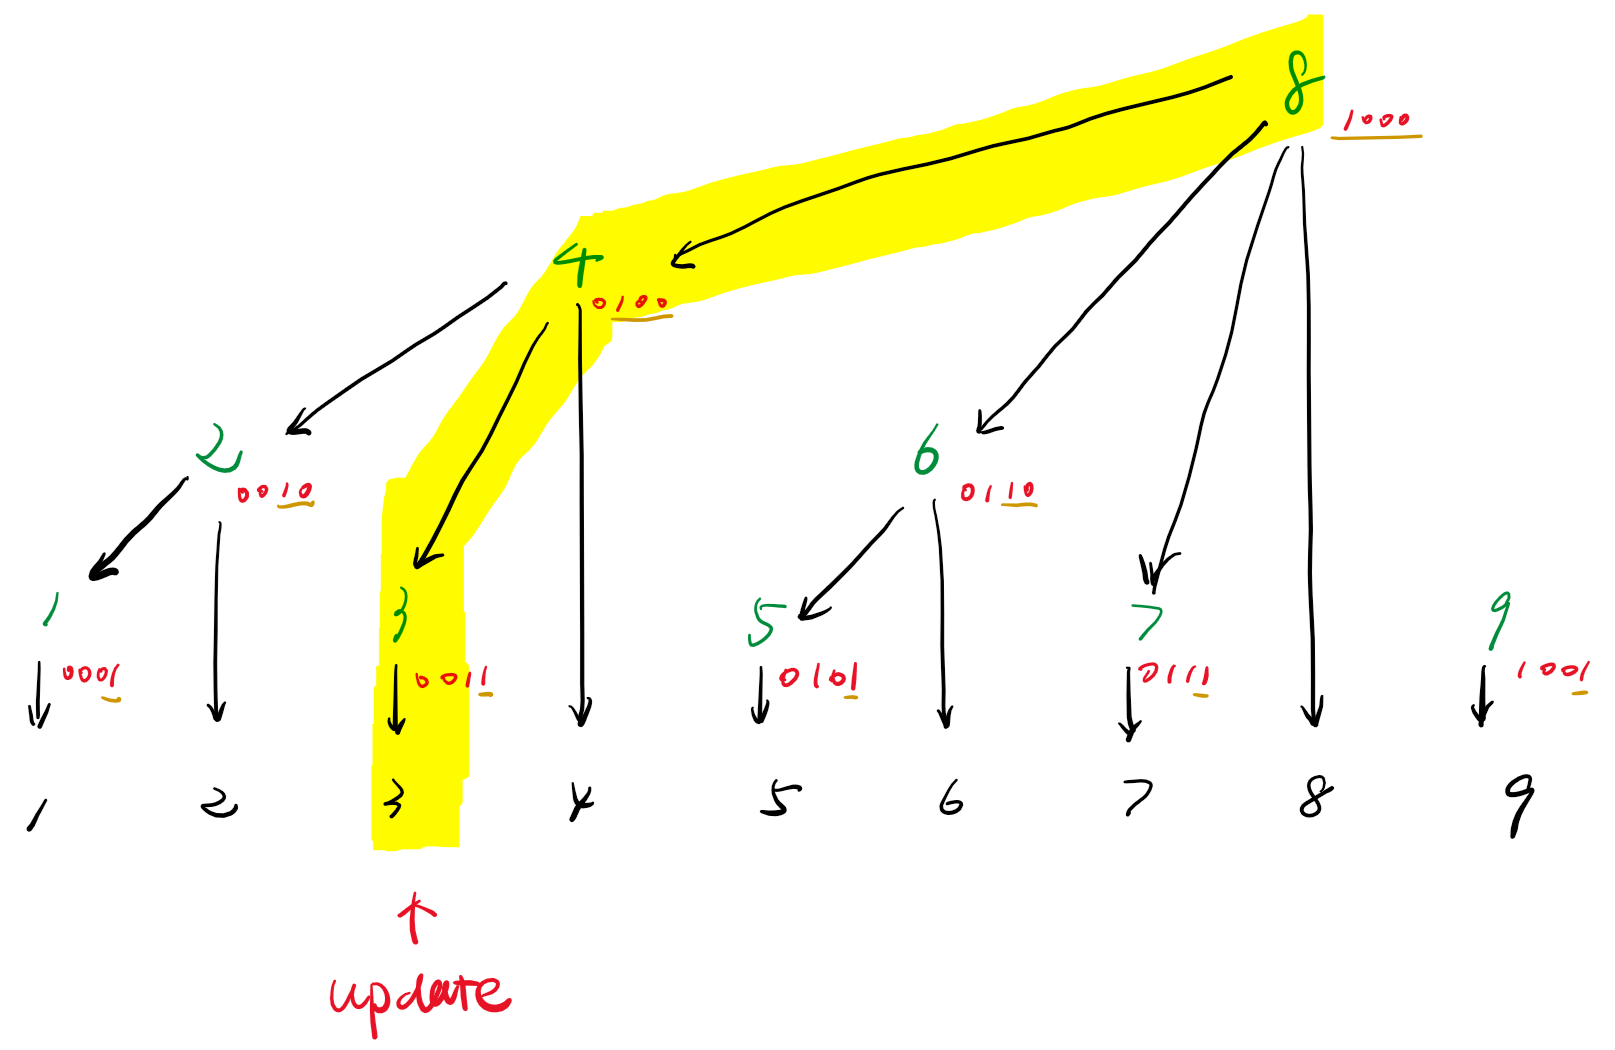 8
1000
4
0100
2
0010
6
0110
1
0001
3
0011
5
0101
7
0111
9
1001
1 2 3 4 5 6 7 8 9
update